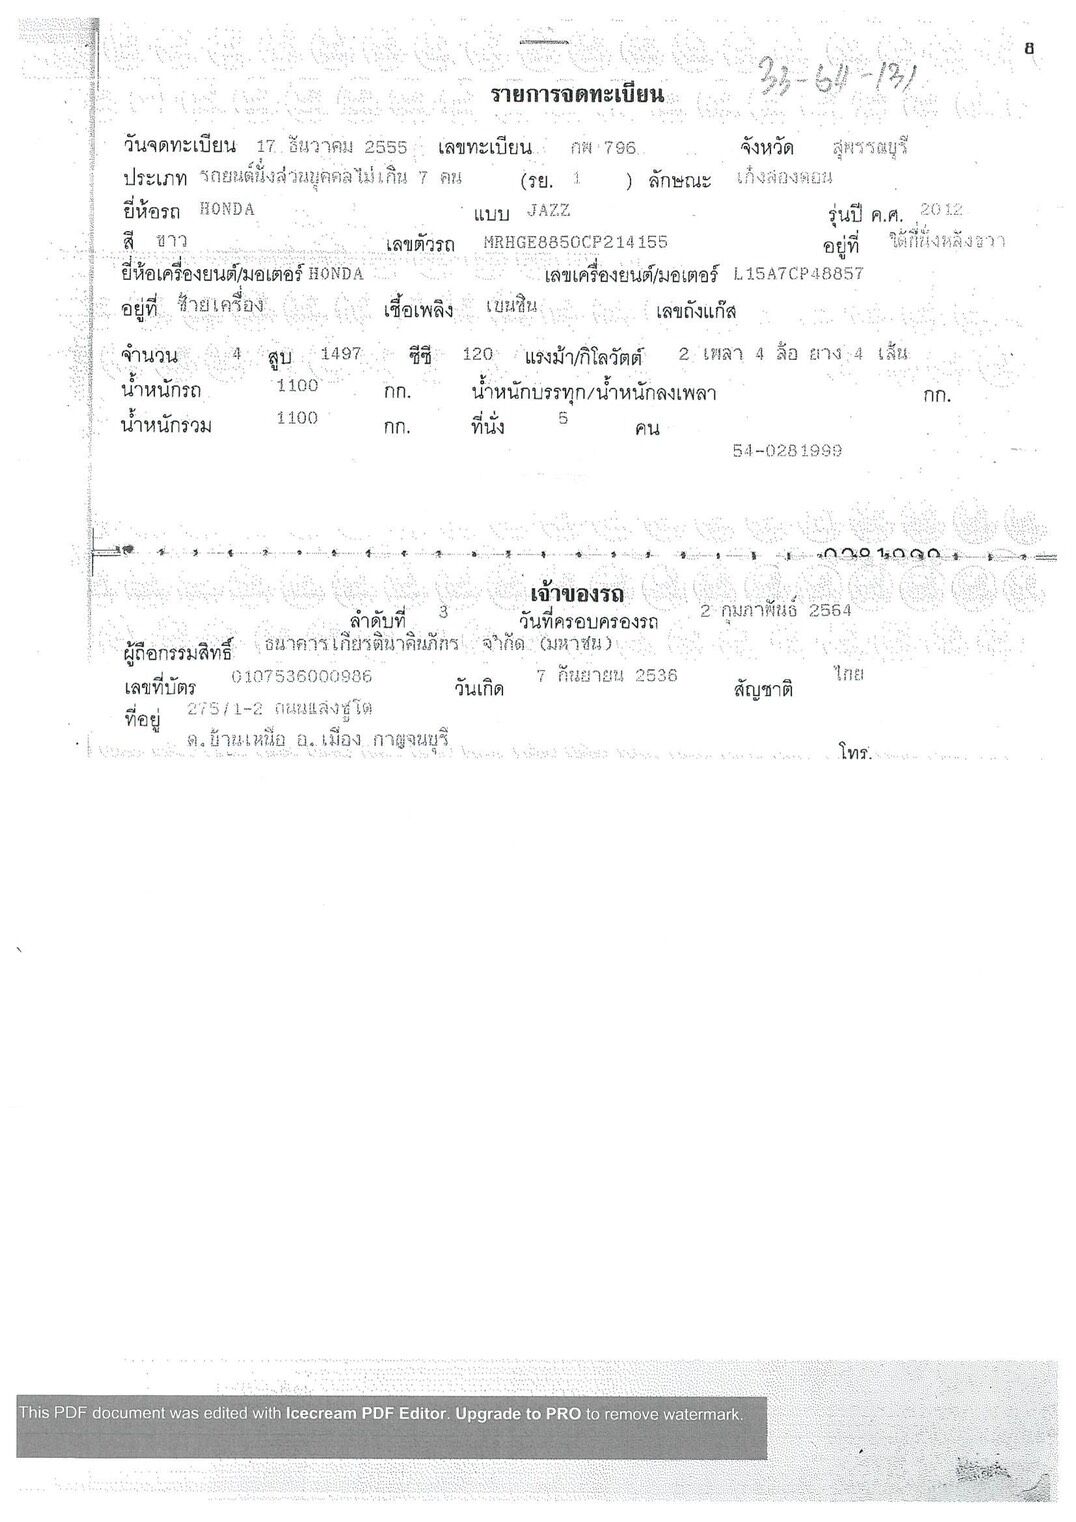 8
33-64-131
รายการจดทะเบียน
วันจดทะเบียน 17 ธันวาคม 2555 เลขทะเบียน กผ 796 จังหวัด สุพรรณบุรี
ประเภท รถยนต์นั่งส่วนบุคคลไม่เกิน 7 คน (รย. 1 ) ลักษณะ เก๋งสองตอน
ยี่ห้อรถ HONDA แบบ JAZZ รุ่นปี ค.ศ. 2012
สี ขาว เลขตัวรถ MRHGE8850CP214155 อยู่ที่ ใต้ที่นั่งหลังขวา
ยี่ห้อเครื่องยนต์/มอเตอร์ HONDA เลขเครื่องยนต์/มอเตอร์ L15A7CP48857
อยู่ที่ ซ้ายเครื่อง เชื้อเพลิง เบนซิน เลขถังแก๊ส
จำนวน 4 สูบ 1497 ซีซี 120 แรงม้า/กิโลวัตต์ 2 เพลา 4 ล้อ ยาง 4 เส้น
น้ำหนักรถ 1100 กก. น้ำหนักบรรทุก/น้ำหนักลงเพลา กก.
น้ำหนักรวม 1100 กก. ที่นั่ง 5 คน
54-0281999
เจ้าของรถ
ลำดับที่ 3 วันที่ครอบครองรถ 2 กุมภาพันธ์ 2564
ผู้ถือกรรมสิทธิ์ ธนาคารเกียรตินาคินภัทร จำกัด (มหาชน)
เลขที่บัตร 0107536000986 วันเกิด 7 กันยายน 2536 สัญชาติ ไทย
ที่อยู่ 275/1-2 ถนนแสงชูโต
ต.บ้านเหนือ อ.เมือง กาญจนบุรี
โทร.
This PDF document was edited with Icecream PDF Editor. Upgrade to PRO to remove watermark.